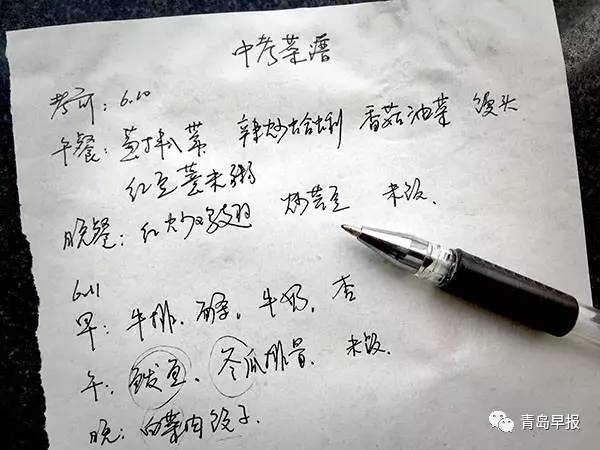 中考菜谱
考前：6.10
午餐： 辣炒蛤蜊 香菇油菜 馒头
红豆薏米粥
晚餐：红炒鸡翅 炒芸豆 米饭.
6.11
早：牛排. 酸牛. 牛奶. 杏
午：鲅鱼. 冬瓜排骨. 米饭.
晚：白菜肉饺子.
青岛早报